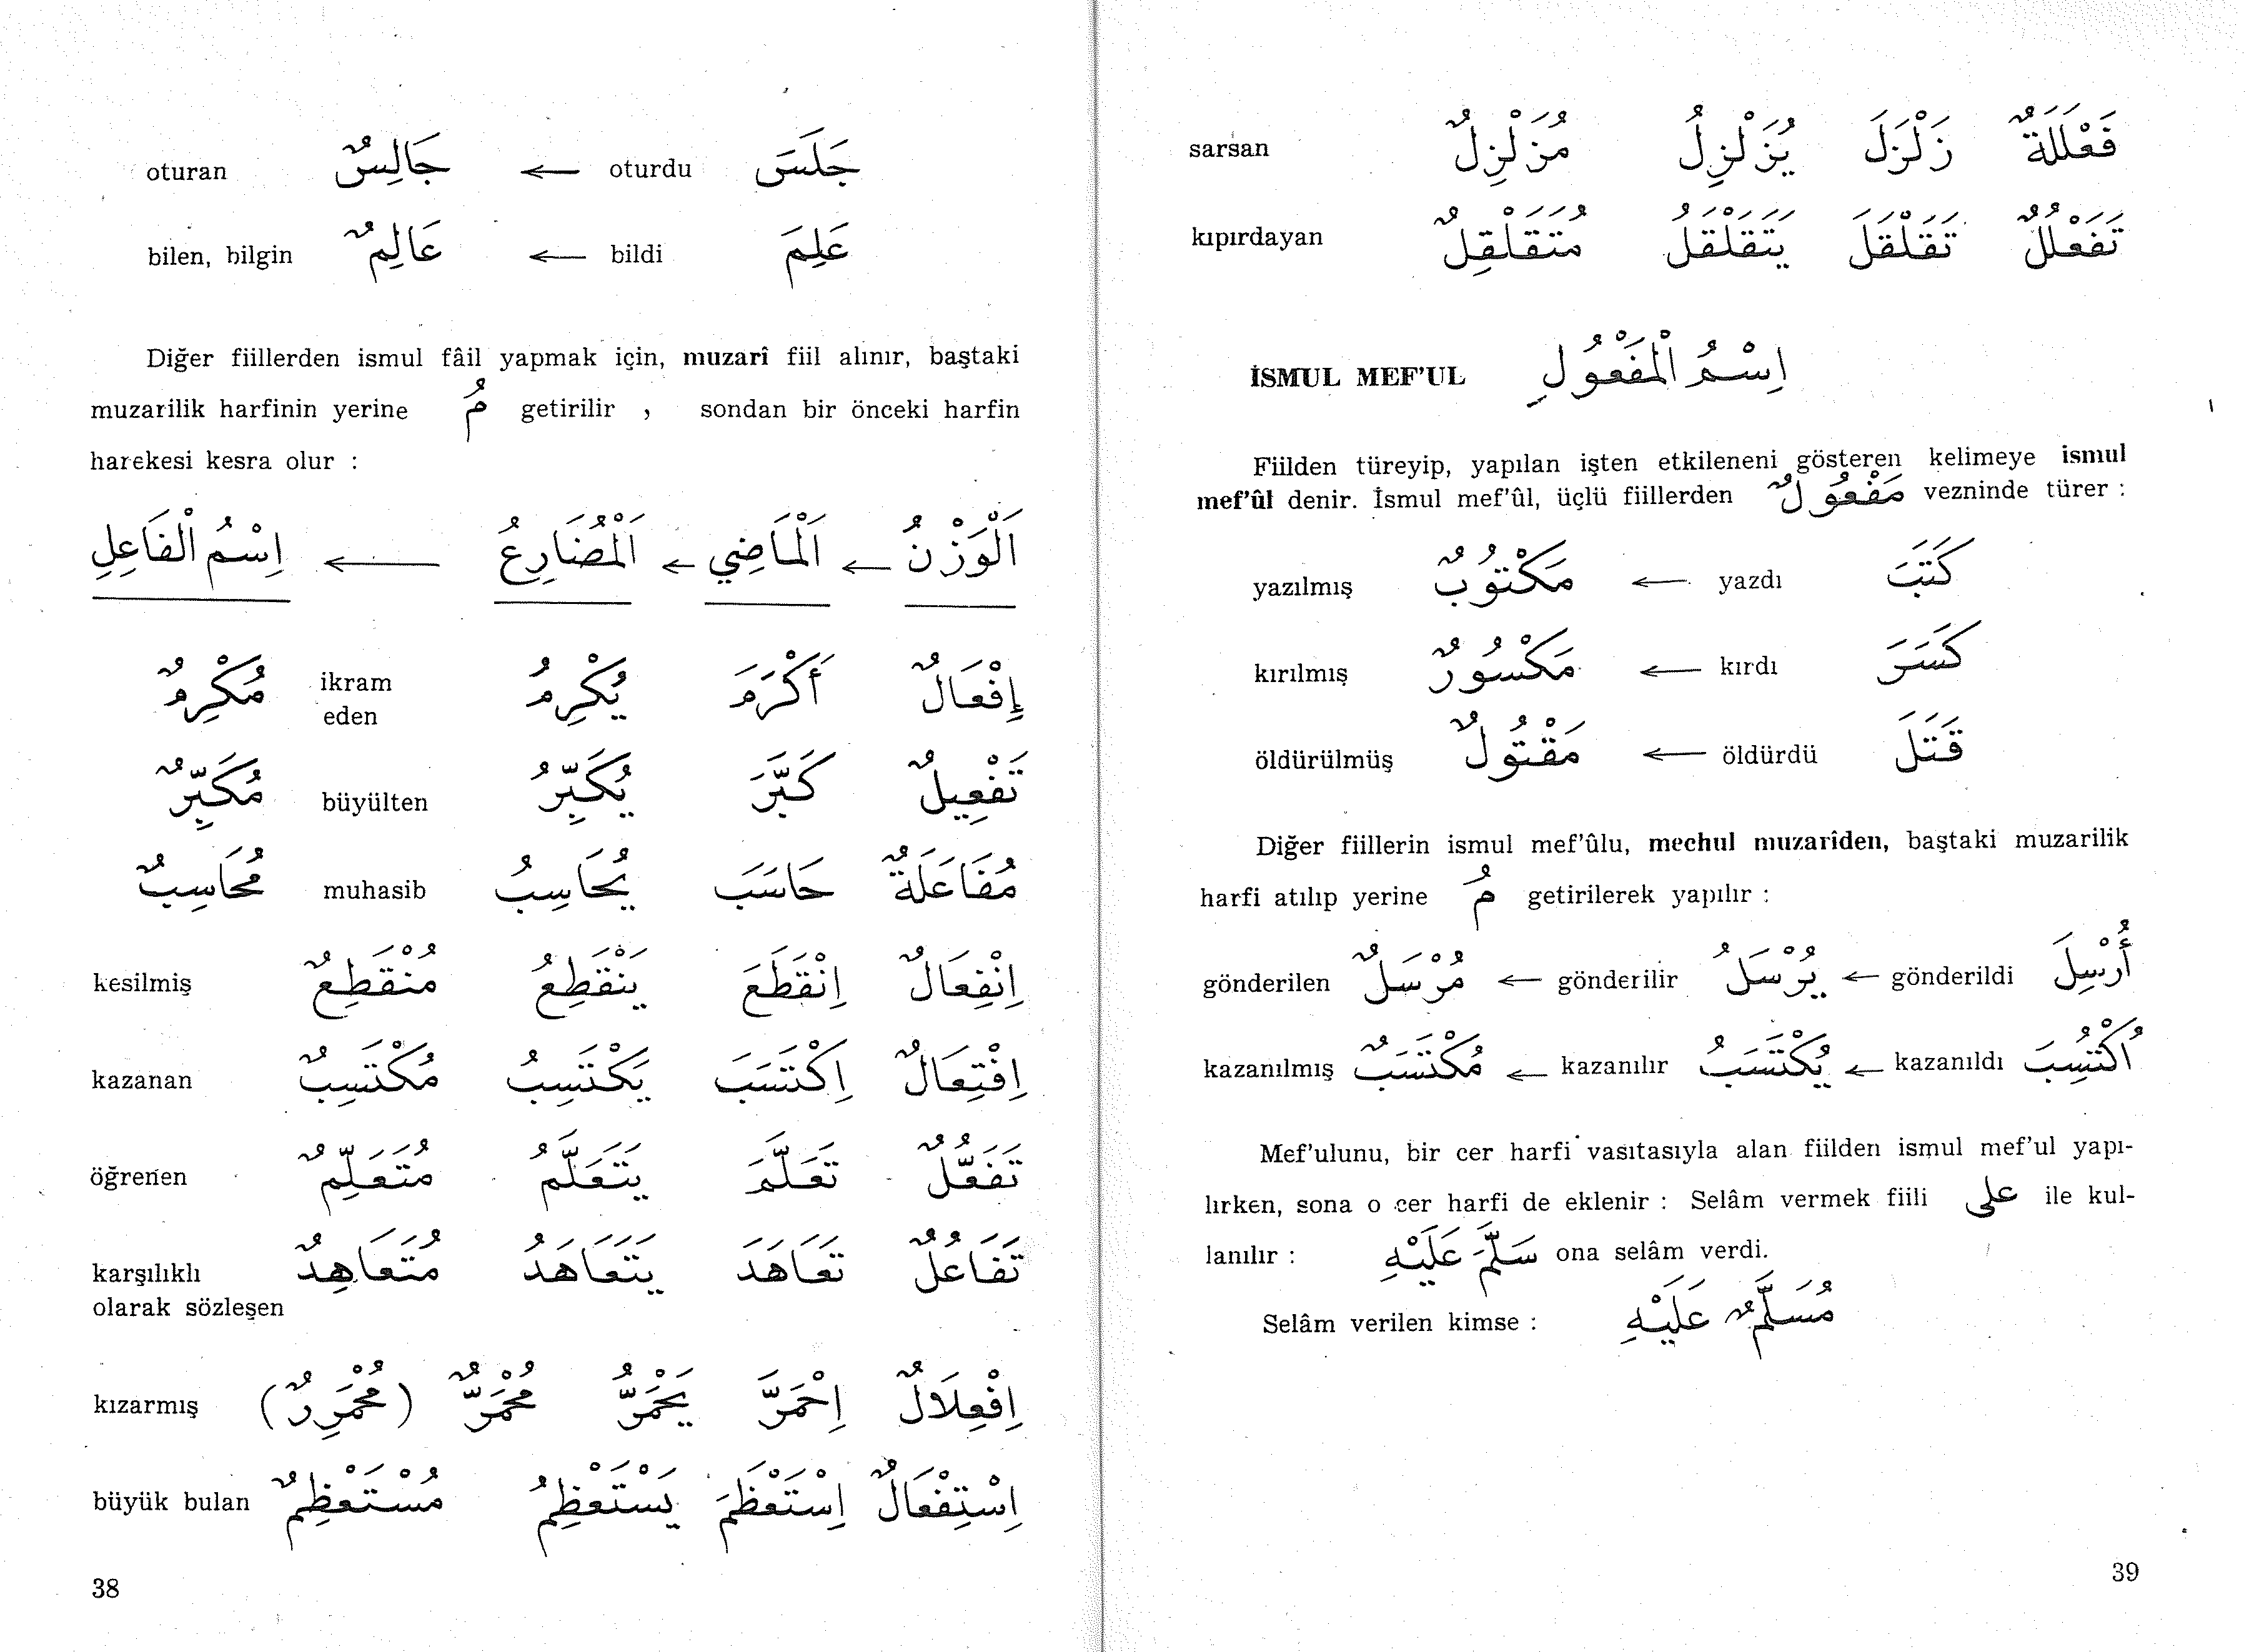 جَلَسَ oturdu ← جَالِسٌ oturan
عَلِمَ bildi ← عَالِمٌ bilen, bilgin
Diğer fiillerden ismul fâil yapmak için, muzarî fiil alınır, baştaki
muzarilik harfinin yerine مُ getirilir , sondan bir önceki harfin
harekesi kesra olur :
اَلْوَزْنُ ← اَلْمَاضِي ← اَلْمُضَارِعُ ← اِسْمُ الْفَاعِلِ
إِفْعَالٌ أَكْرَمَ يُكْرِمُ ikram eden مُكْرِمٌ
تَفْعِيلٌ كَبَّرَ يُكَبِّرُ büyülten مُكَبِّرٌ
مُفَاعَلَةٌ حَاسَبَ يُحَاسِبُ muhasib مُحَاسِبٌ
اِنْفِعَالٌ اِنْقَطَعَ يَنْقَطِعُ مُنْقَطِعٌ kesilmiş
اِفْتِعَالٌ اِكْتَسَبَ يَكْتَسِبُ مُكْتَسِبٌ kazanan
تَفَعُّلٌ تَعَلَّمَ يَتَعَلَّمُ مُتَعَلِّمٌ öğrenen
تَفَاعُلٌ تَعَاهَدَ يَتَعَاهَدُ مُتَعَاهِدٌ karşılıklı
olarak sözleşen
اِفْعِلَالٌ اِحْمَرَّ يَحْمَرُّ مُحْمَرٌّ (مُحْمَرِرٌ) kızarmış
اِسْتِفْعَالٌ اِسْتَعْظَمَ يَسْتَعْظِمُ مُسْتَعْظِمٌ büyük bulan
38
فَعْلَلَةٌ زَلْزَلَ يُزَلْزِلُ مُزَلْزِلٌ sarsan
تَفَعْلُلٌ تَقَلْقَلَ يَتَقَلْقَلُ مُتَقَلْقِلٌ kıpırdayan
İSMUL MEF'UL اِسْمُ الْمَفْعُولِ
Fiilden türeyip, yapılan işten etkileneni gösteren kelimeye ismul
mef'ûl denir. İsmul mef'ûl, üçlü fiillerden مَفْعُولٌ vezninde türer :
كَتَبَ yazdı ← مَكْتُوبٌ yazılmış
كَسَرَ kırdı ← مَكْسُورٌ kırılmış
قَتَلَ öldürdü ← مَقْتُولٌ öldürülmüş
Diğer fiillerin ismul mef'ûlu, mechul muzarîden, baştaki muzarilik
harfi atılıp yerine مُ getirilerek yapılır :
أُرْسِلَ gönderildi ← يُرْسَلُ gönderilir ← مُرْسَلٌ gönderilen
اُكْتُسِبَ kazanıldı ← يُكْتَسَبُ kazanılır ← مُكْتَسَبٌ kazanılmış
Mef'ulunu, bir cer harfi vasıtasıyla alan fiilden ismul mef'ul yapı-
lırken, sona o cer harfi de eklenir : Selâm vermek fiili على ile kul-
lanılır : سَلَّمَ عَلَيْهِ ona selâm verdi.
Selâm verilen kimse : مُسَلَّمٌ عَلَيْهِ
39